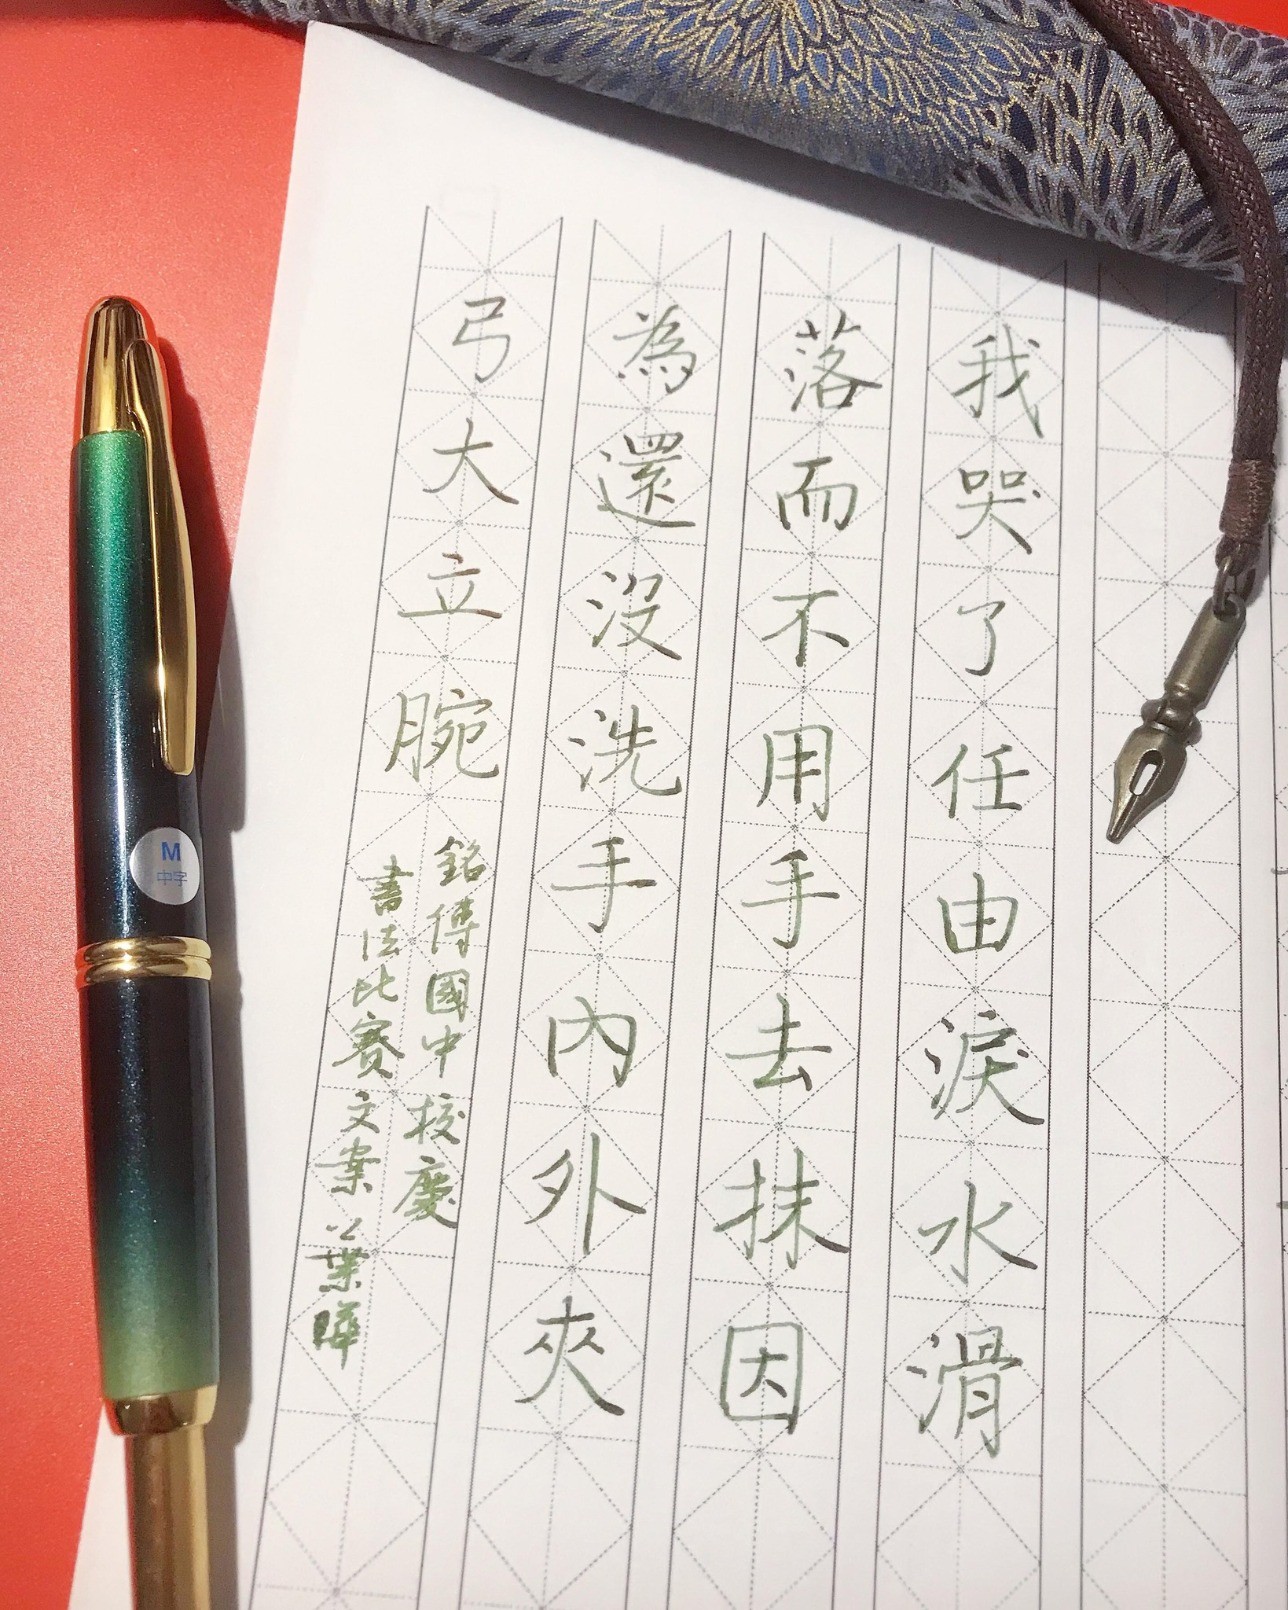 我哭了任由淚水滑
落而不用手去抹因
為還沒洗手內外夾
弓大立腕
銘傳國中校慶
書法比賽文案 葉曄
M
中字